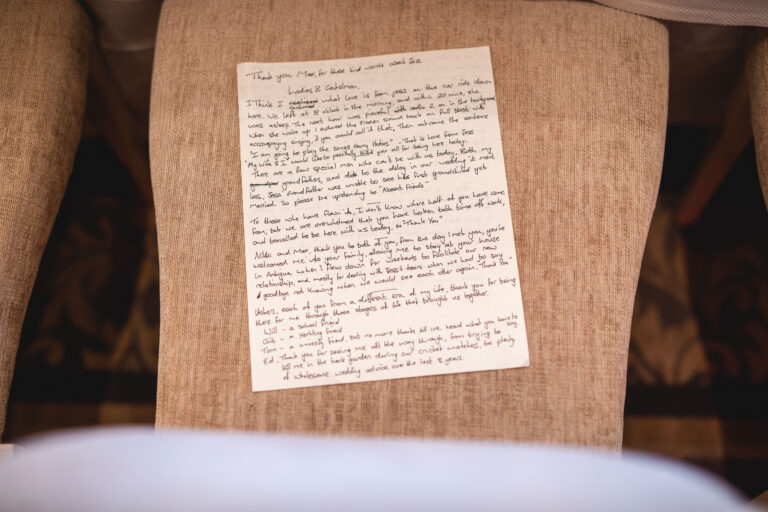 Thank you Max, for those kind words about Jess
Ladies & Gentelman.
I Think I realised what love is from Jess on the car ride down
here. We left at 8 o'clock in the morning, and within 20 mins, she
was asleep. The next hour was peaceful with radio 2 on in the background
When she woke up I endured the Frozen sound track on full blast with
accompanying singing, if you could call it that, Then out came the sentence
"I am going to play the songs Harry Hates" - That is Love from Jess
"My wife & I would like to thank you all for being here today.
There are a few special men who can't be with us today. Both my
grandfathers, and due to the delay in our wedding it ment
Jess' Grandfather was unable to see his first grandchild get
Married. So please be upstanding to "Absent Friends"
To those who have flown in, I don't know where half of you have come
from, but we are overwhelmed that you have taken both time off work,
and travelled to be here with us today, so "Thank You"
Nikki and Max, thank you to both of you, from the day I met you, you've
welcomed me into your family, allowing me to stay at your house
in Antigua when I flew down for weekends to facilitate our new
relationship, and mostly for dealing with Jess's tears when we had to say
goodbye not knowing when we would see each other again. "Thank You"
Ushers, each of you from a different era of my life, thank you for being
there for me through those stages of life that brought us together.
Will - a school friend
Chib - a Yachting friend
Tom - a university friend, but no more thanks till we heard what you have to say
Ed, Thank you for seeing me all the way through, from trying to
kill me in the back garden during our cricket matches, to plenty
of wholesome wedding advice over the last 3 years.